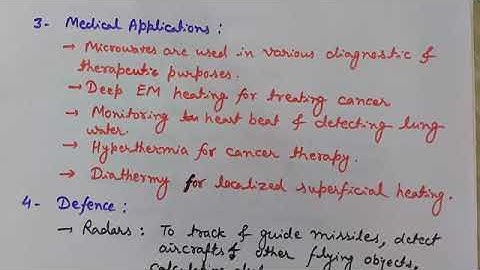 3- Medical Applications :
→ Microwaves are used in various diagnostic &
therapeutic purposes.
→ Deep EM heating for treating cancer
→ Monitoring heart beat & detecting lung
water.
→ Hyperthermia for cancer therapy.
→ Diathermy for localized superficial heating.
4- Defence :
→ Radars : To track & guide missiles, detect
aircrafts & other flying objects,